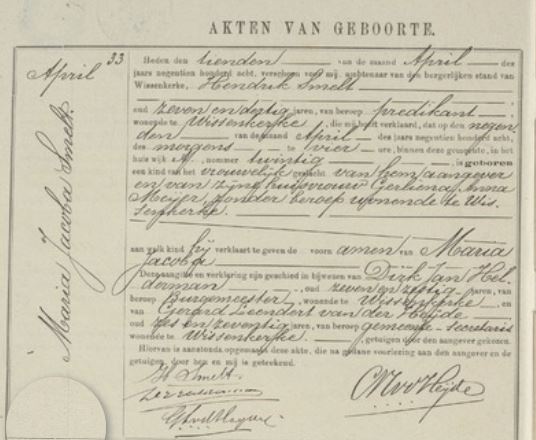 AKTEN VAN GEBOORTE.
33
April
Maria Jacoba Smelt.
Heden den tienden van de maand April des
jaars negentien honderd acht, verscheen voor mij, ambtenaar van den burgerlijken stand van
Wissenkerke, Hendrik Smelt
oud zeven en dertig jaren, van beroep predikant
wonende te Wissenkerke, die mij heeft verklaard, dat op den negen
den van de maand April des jaars negentien honderd acht,
des morgens te vier ure, binnen deze gemeente, in het
huis wijk A, nommer twintig, is geboren
een kind van het vrouwelijk geslacht van hem aangever
en van zijne huisvrouw Gerliena Anna
Meijer, zonder beroep wonende te Wis-
senkerke.
aan welk kind hij verklaart te geven de voornamen van Maria
Jacoba
Deze aangifte en verklaring zijn geschied in bijwezen van Dirk Jan Hel-
derman, oud zeven en zestig jaren, van
beroep Burgemeester, wonende te Wissenkerke en
van Gerard Leendert van der Heijde
oud zes en zeventig jaren, van beroep gemeente-secretaris
wonende te Wissenkerke, getuigen door den aangever gekozen.
Hiervan is aanstonds opgemaakt deze akte, die na gedane voorlezing aan den aangever en de
getuigen, door hen en mij is geteekend.
H Smelt.